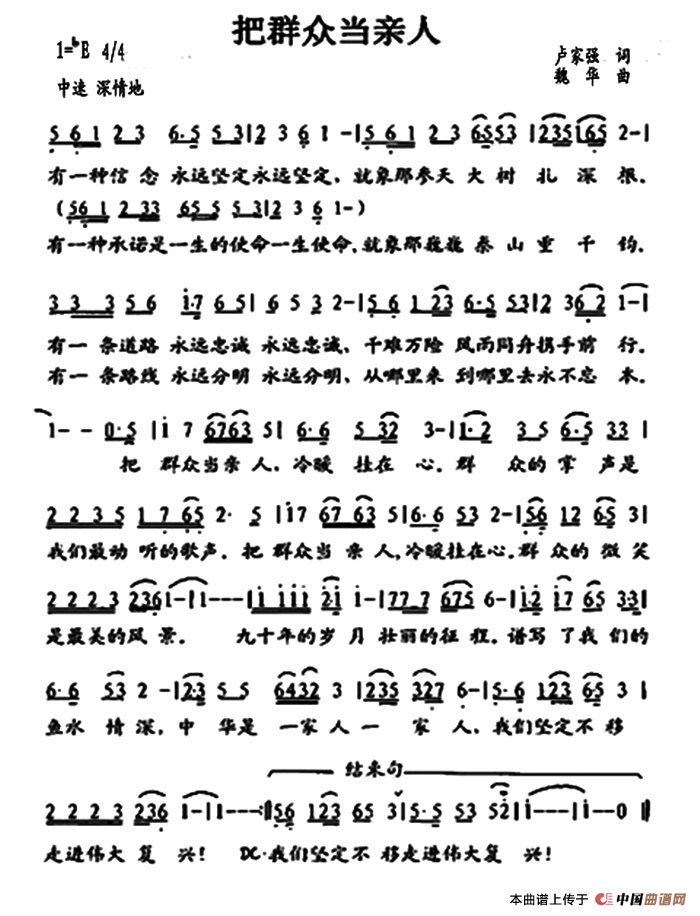 把群众当亲人
1=♭E 4/4
卢家强 词
中速 深情地
魏 华 曲
5 6 1 2 3 6·5 5 3|2 3 6 1 -|5 6 1 2 3 65 53 |235 165 2-|
有一种信 念 永远坚定永远坚定，就象那参天 大 树 扎 深 根。
(561 2 33 65 5 5 3|2 3 6 1-)
有一种承诺是一生的使命一生使命，就象那巍巍 泰 山 重 千 钧。
3 3 3 5 6 i·7 6 5| 6 5 3 2-|5 6 1 23 6·5 53|2 36 2 1-|
有一 条道路 永远忠诚 永远忠诚、千难万险 风雨同舟携手前 行。
有一 条路线 永远分明 永远分明、从哪里来 到哪里去永不忘 本。
1- - 0·5 |i 7 6763 5|6·6 5 32 3-|i·2 3 5 6·5 33 |
把 群众当亲 人，冷暖 挂在 心。群 众的 掌 声是
2 2 3 5 1 7 65 2· 5 |i7 67 63 5|6·6 53 2-|56 12 65 3|
我们最动 听的歌声。把 群众当 亲 人，冷暖挂在心。群 众的 微 笑
2 2 2 3 236 1-|1---|i i i i i 2·i i-|77 7 675 6-|i 2 i7 65 33|
是最美的风 景。 九十年的岁 月 壮丽的征 程。谱写 了我 们的
6·6 53 2 -|2·3 5 5 6432 3 |235 327 6-|5·6 123 65 3|
鱼水 情 深，中 华是 一家 人 一 家 人，我们坚定不 移
结束句
2 2 2 3 236 1-|1---:‖56 123 65 3|5·5 53 52|i---|i--0‖
走进伟大 复 兴！ DC·我们坚定不 移走进伟大复 兴！
本曲谱上传于 中国曲谱网